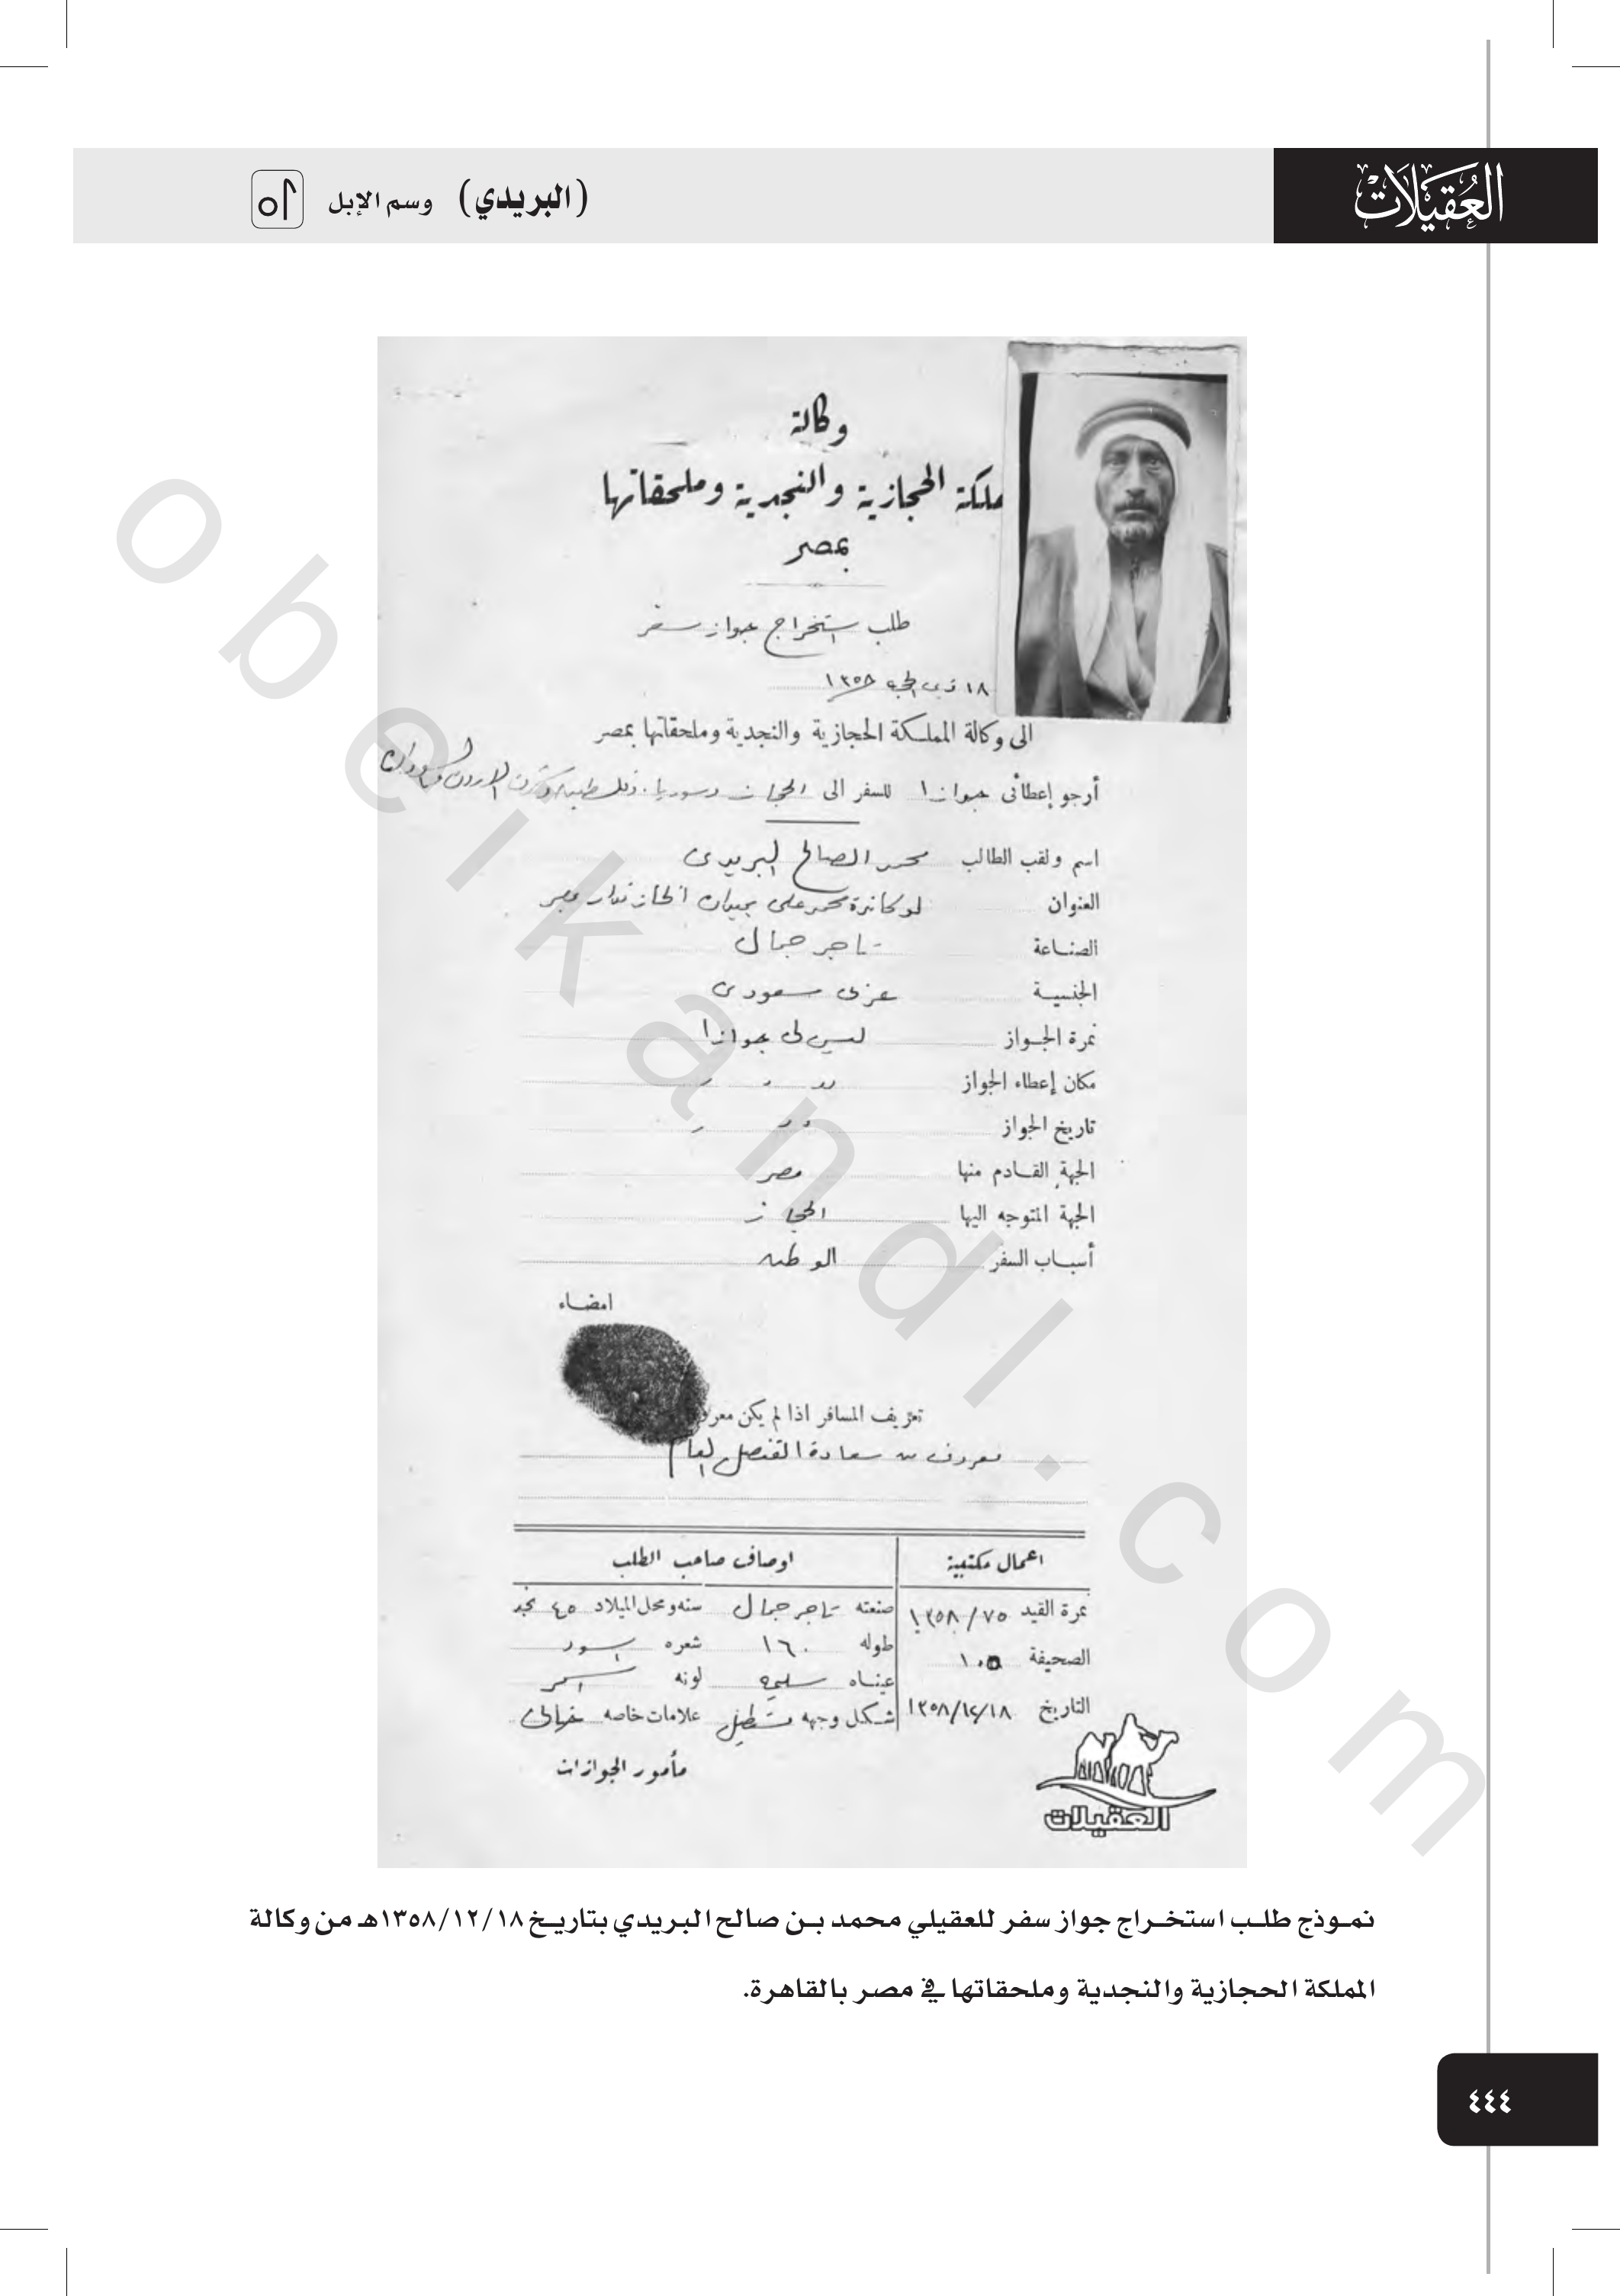 العُقَيْلَاتْ
(البريدي) وسم الإبل
وكالة
ملكة الحجازية والنجدية وملحقاتها
بمصر
طلب استخراج جواز سفر
١٨ ذى الحجه ١٣٥٨
الى وكالة المملكة الحجازية والنجدية وملحقاتها بمصر
أرجو إعطائى جوازا للسفر الى الحجاز وسوريا وفلسطين وشرق الاردن والسودان
اسم ولقب الطالب محمد الصالح البريدى
العنوان لوكاندة محمد على بميدان الخازندار مصر
الصناعة تاجر جمال
الجنسية عربى سعودى
نمرة الجواز ليس لى جوازا
مكان إعطاء الجواز
تاريخ الجواز
الجهة القادم منها مصر
الجهة المتوجه اليها الحجاز
أسباب السفر الوطن
امضاء
تعريف المسافر اذا لم يكن معرو
معروف من سعادة القنصل العام
اعمال مكتبية اوصاف صاحب الطلب
نمرة القيد ٧٥/١٣٥٨ صنعته تاجر جمال سنه ومحل الميلاد ٤٥ نجد
الصحيفة ١٠٥ طوله ١٦٠ شعره اسود
عيناه لونه اسمر
التاريخ ١٣٥٨/١٢/١٨ شكل وجهه مستطيل علامات خاصه خالى
مأمور الجوازات
العقيلات
نموذج طلب استخراج جواز سفر للعقيلي محمد بن صالح البريدي بتاريخ ١٣٥٨/١٢/١٨هـ من وكالة
المملكة الحجازية والنجدية وملحقاتها في مصر بالقاهرة.
٤٤٤
obeikandl.com